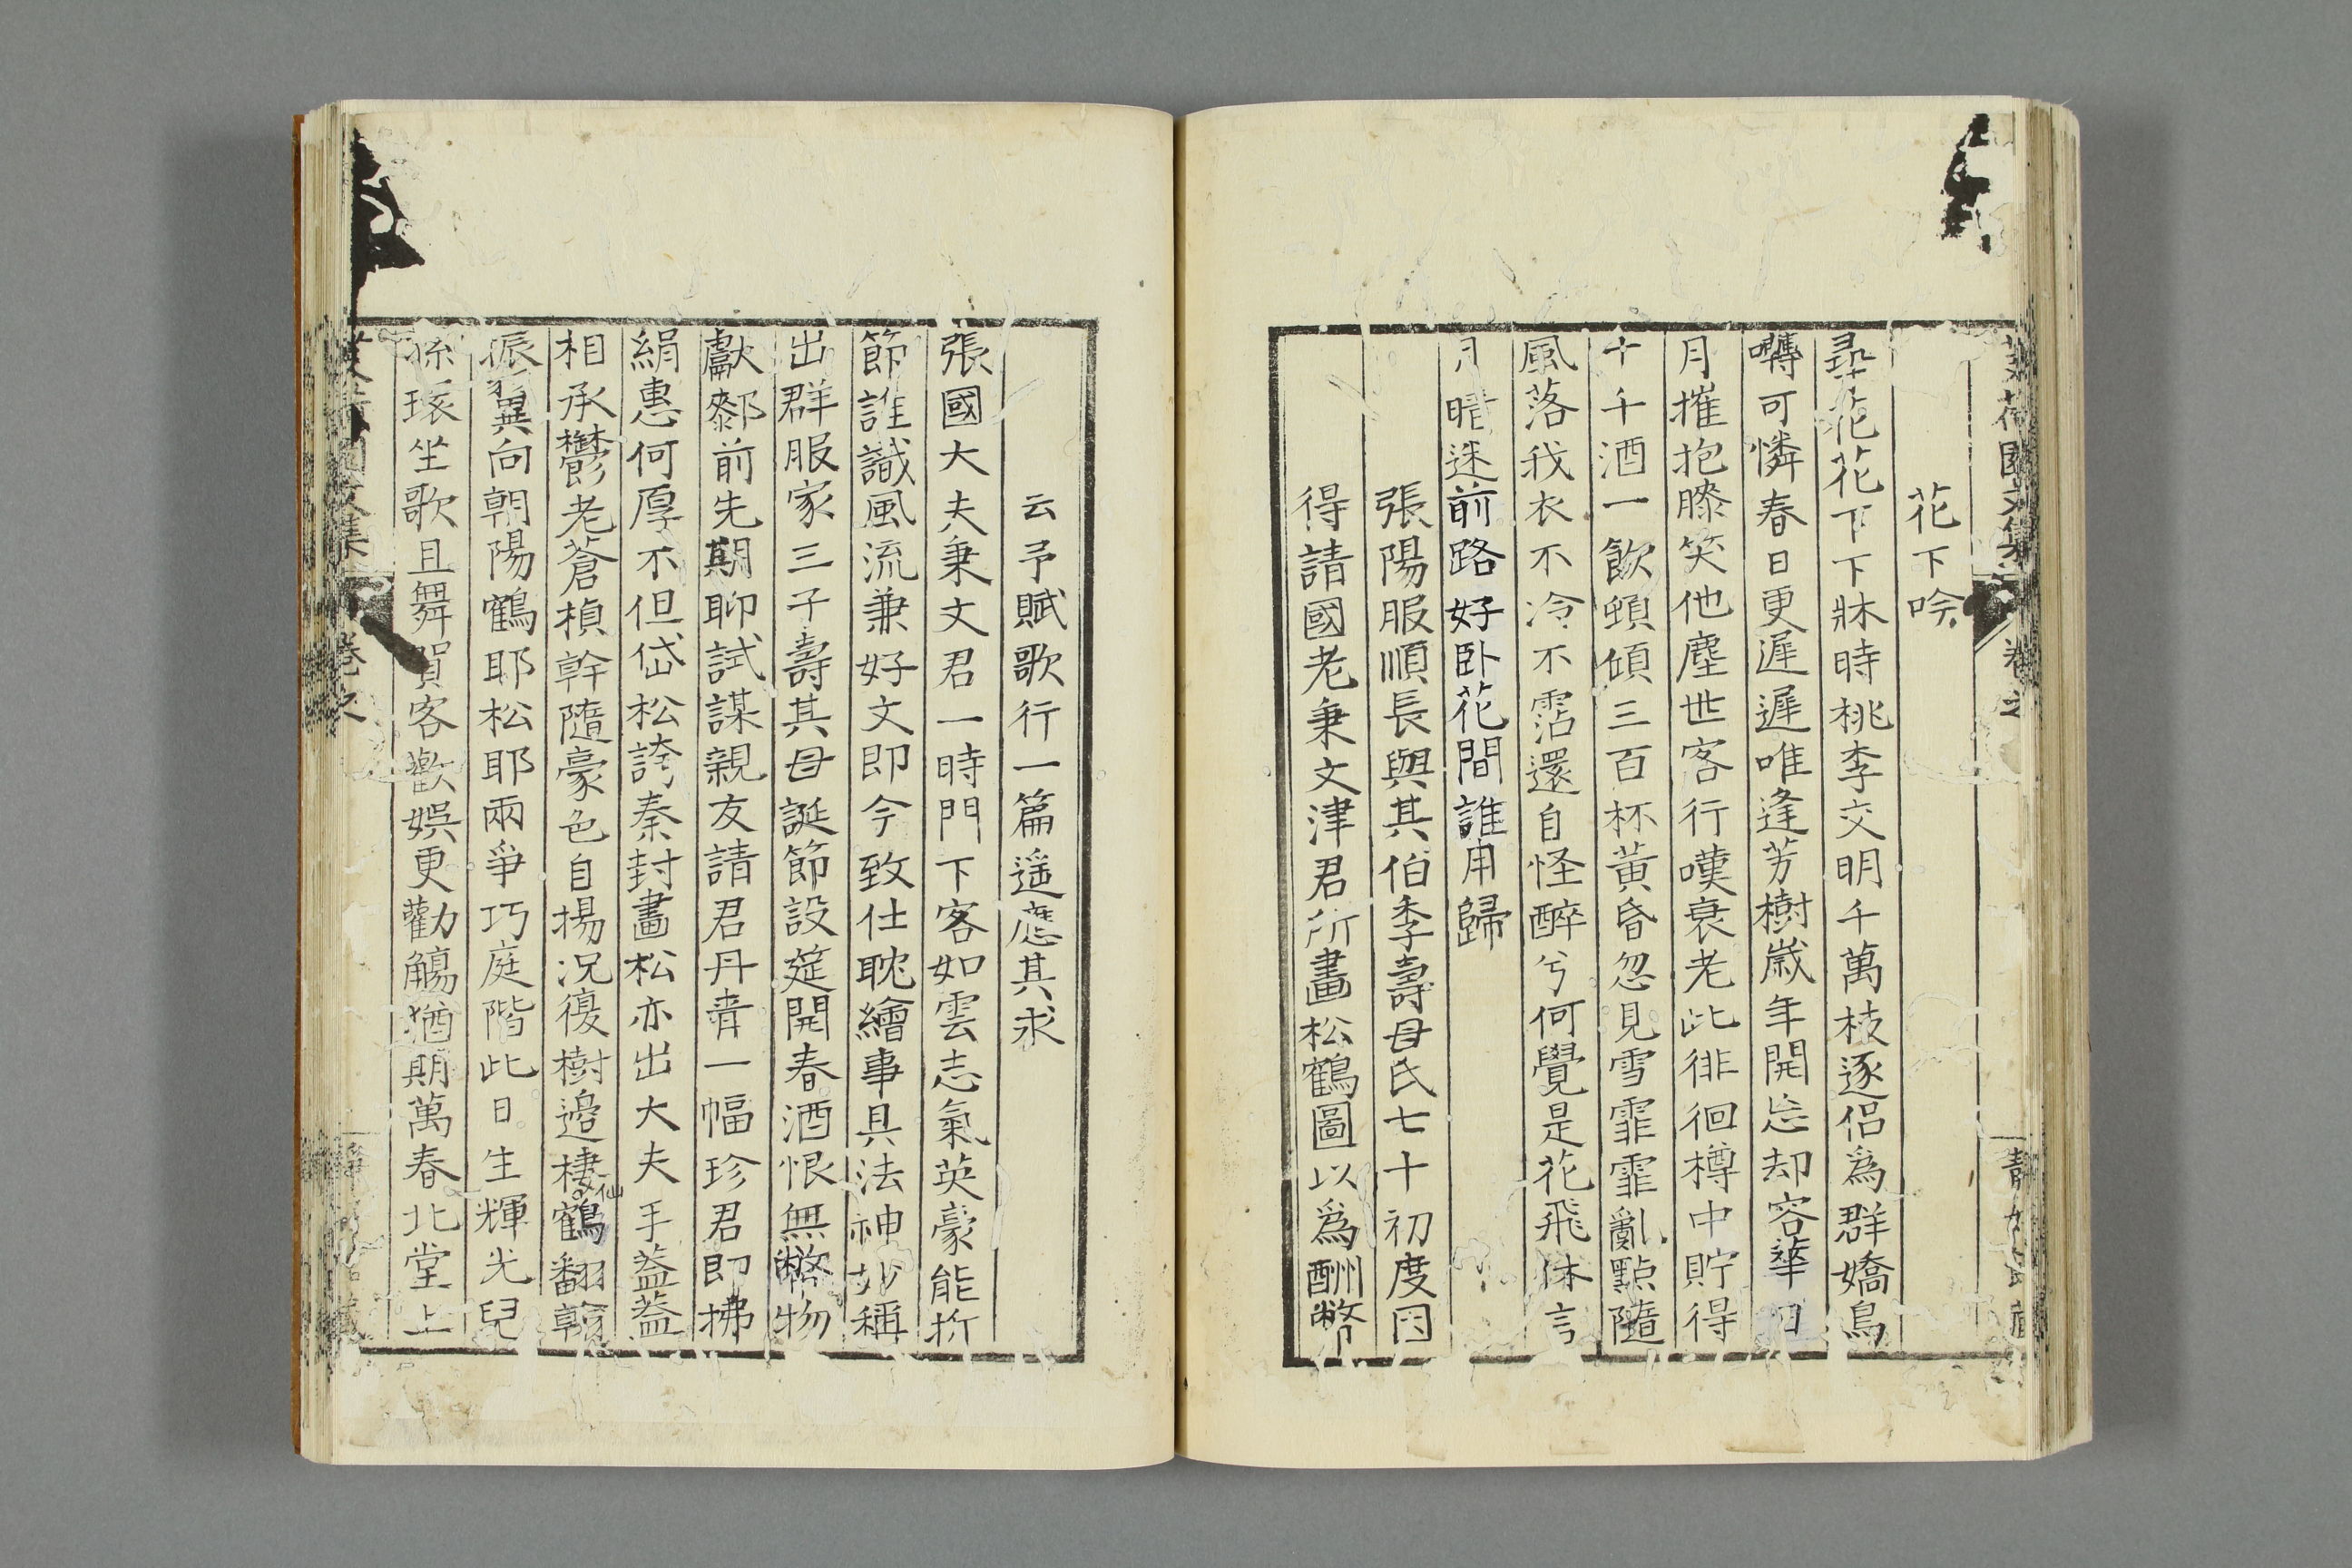 花下吟
尋花花下下牀時桃李交明千萬枝逐侶爲群嬌鳥
囀可憐春日更遲遲唯逢芳樹歳年開忘却容華日
月摧抱膝笑他塵世客行嘆衰老此徘徊樽中貯得
十千酒一飲頓傾三百杯黃昏忽見雪霏霏亂點隨
風落我衣不冷不霑還自怪醉兮何覺是花飛休言
月暗迷前路好臥花間誰用歸
張陽服順長與其伯季壽母氏七十初度因
得請國老秉文津君所畫松鶴圖以爲酬幣
云予賦歌行一篇遥應其求
張國大夫秉文君一時門下客如雲志氣英豪能折
節誰識風流兼好文即今致仕耽繪事具法神妙稱
出群服家三子壽其母誕節設筵開春酒恨無幣物
獻鄰前先期聊試謀親友請君丹青一幅珍君即拂
絹惠何厚不但岱松誇秦封畫松亦出大夫手葢葢
相承鬱老蒼楨幹隨豪色自揚況復樹邉棲鶴翻翰
仙
振翼向朝陽鶴耶松耶兩爭巧庭階此日生輝光兒
孫環坐歌且舞賀客歡娯更勸觴猶期萬春北堂上
文集
卷之